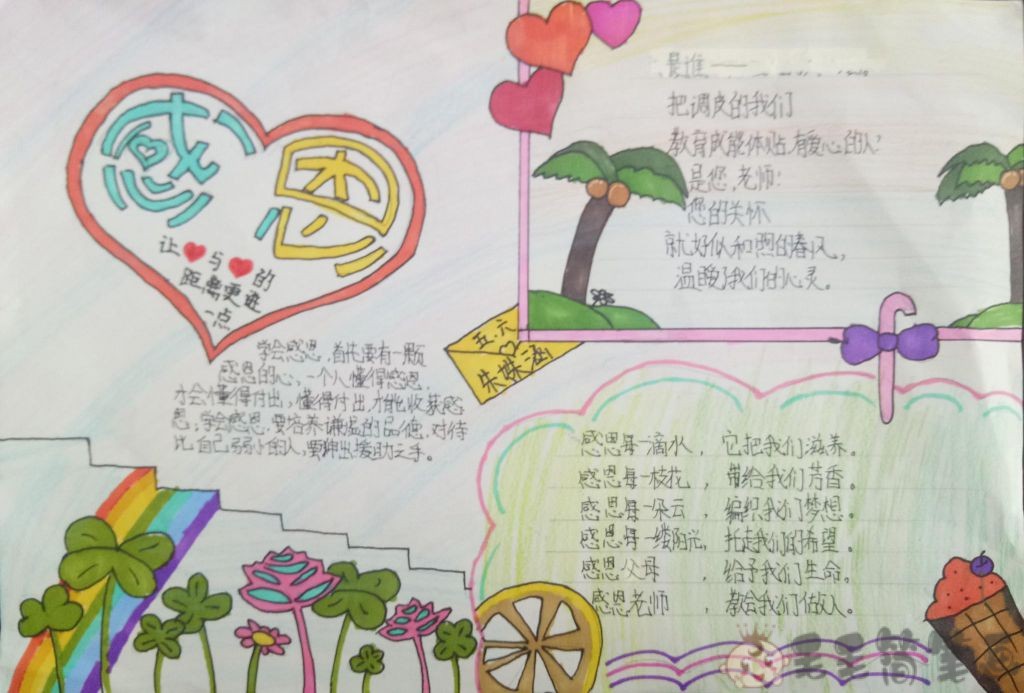 感恩
让 与 的
距离更近
一点
学会感恩,首先要有一颗
感恩的心,一个人懂得感恩,
才会懂得付出,懂得付出,才能收获感
恩;学会感恩,要培养谦逊的品德,对待
比自己弱小的人,要伸出援助之手。
五.六
朱蝶涵
是谁——
把调皮的我们
教育成能体贴有爱心的人?
是您,老师!
您的关怀
就好似和煦的春风,
温暖了我们的心灵。
感恩每一滴水,它把我们滋养。
感恩每一枝花,带给我们芳香。
感恩每一朵云,编织我们梦想。
感恩每一缕阳光,托起我们的希望。
感恩父母,给予我们生命。
感恩老师,教会我们做人。